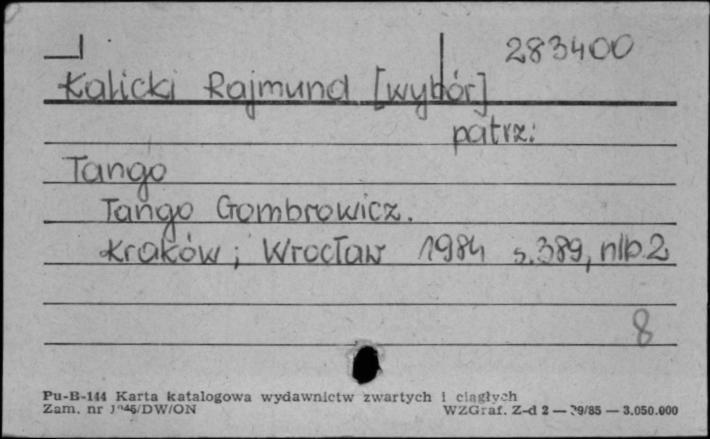 283400
Kalicki Rajmund [wybór]
patrz:
Tango
Tango Gombrowicz.
Kraków; Wrocław 1984 s.389, nlb.2
8
Pu-B-144 Karta katalogowa wydawnictw zwartych i ciągłych
Zam. nr /DW/ON WZGraf. Z-d 2 — 29/85 — 3.050.000